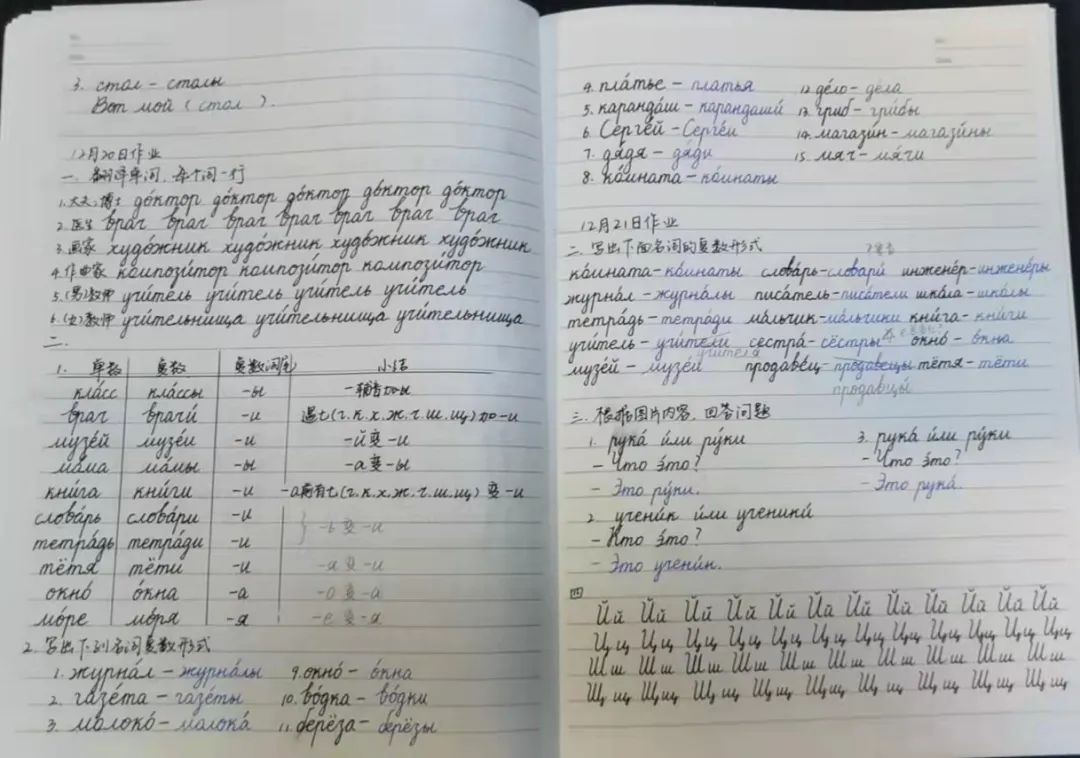 3. стол - столы
Вот мой ( стол ).
12月20日作业
一. 翻译单词, 每个词一行
1.大夫;博士 до́ктор до́ктор до́ктор до́ктор до́ктор
2.医生 враг враг враг враг враг враг враг
3.画家 худо́жник худо́жник худо́жник худо́жник
4.作曲家 компози́тор компози́тор компози́тор
5.(男)教师 учи́тель учи́тель учи́тель учи́тель
6.(女)教师 учи́тельница учи́тельница учи́тельница
二.
1. 单数 复数 复数词尾 小结
кла́сс кла́ссы -ы -辅音加ы
враг враги́ -и 遇七(г.к.х.ж.ч.ш.щ)加-и
музе́й музе́и -и -й变-и
ма́ма ма́мы -ы -а变-ы
кни́га кни́ги -и -а前有七(г.к.х.ж.ч.ш.щ)变-и
слова́рь словари́ -и
тетра́дь тетра́ди -и } -ь变-и
тётя тёти -и -я变-и
окно́ о́кна -а -о变-а
мо́ре моря́ -я -е变-я
2. 写出下列名词复数形式
1. журна́л - журна́лы 9.окно́ - о́кна
2. газе́та - газе́ты 10.во́дка - во́дки
3. молоко́ - молока́ 11.берёза - берёзы
4. пла́тье - платья 12.де́ло - дела
5. каранда́ш - карандаши́ 13.гриб - грибы́
6. Серге́й - Серге́и 14.магази́н - магази́ны
7. дя́дя - дя́ди 15.мяч - мячи
8. ко́мната - ко́мнаты
12月21日作业
二. 写出下面名词的复数形式
ко́мната-ко́мнаты слова́рь-словари́ инжене́р-инжене́ры
журна́л - журна́лы писа́тель-писа́тели шко́ла-шко́лы
тетра́дь - тетра́ди ма́льчик-ма́льчики кни́га-кни́ги
учи́тель - учи́тели сестра́-сёстры окно́ - о́кна
учителя́
музе́й - музе́й продаве́ц-продавецы тётя-тёти
продавцы́
三. 根据图片内容, 回答问题
1. рука́ и́ли ру́ки 3. рука́ и́ли ру́ки
- Что э́то? - Что э́то?
- Это ру́ки. - Это рука́.
2. учени́к и́ли ученики́
- Кто э́то?
- Это учени́к.
Йй Йй Йй Йй Йй Йй Йй Йй Йй Йй Йй
Цц Цц Цц Цц Цц Цц Цц Цц Цц Цц Цц
Шш Шш Шш Шш Шш Шш Шш Шш Шш Шш
Щщ Щщ Щщ Щщ Щщ Щщ Щщ Щщ Щщ